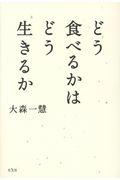 どう
食べるかは
どう
生きるか
大森一慧